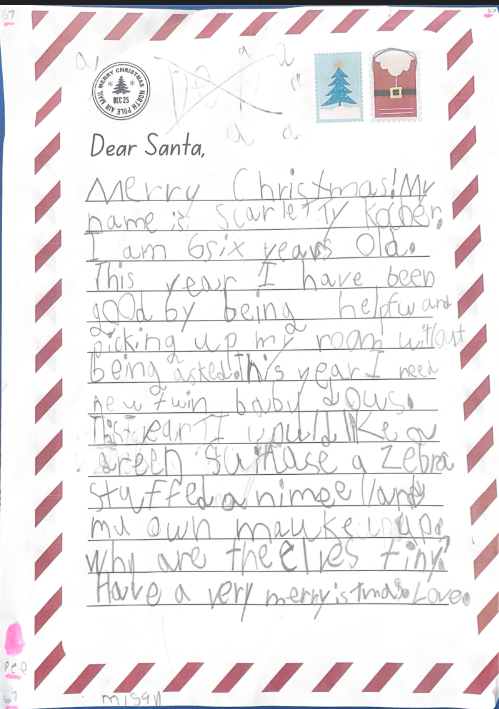 67
67
MERRY CHRISTMAS NORTH POLE AIR MAIL
DEC 25
a a a
a a
Dear Santa,
Merry Christmas! My
name is Scarlett Ty
I am 6six years Old.
This year I have been
good by being helpfw and
picking up my room witout
being asked. This year I need
new twin baby dows.
This year I would like a
green suitcase a Zebra
stuffed animee l and
my own maukeup.
why are the elves tiny?
Have a very merryistmas. Love.
pep
67